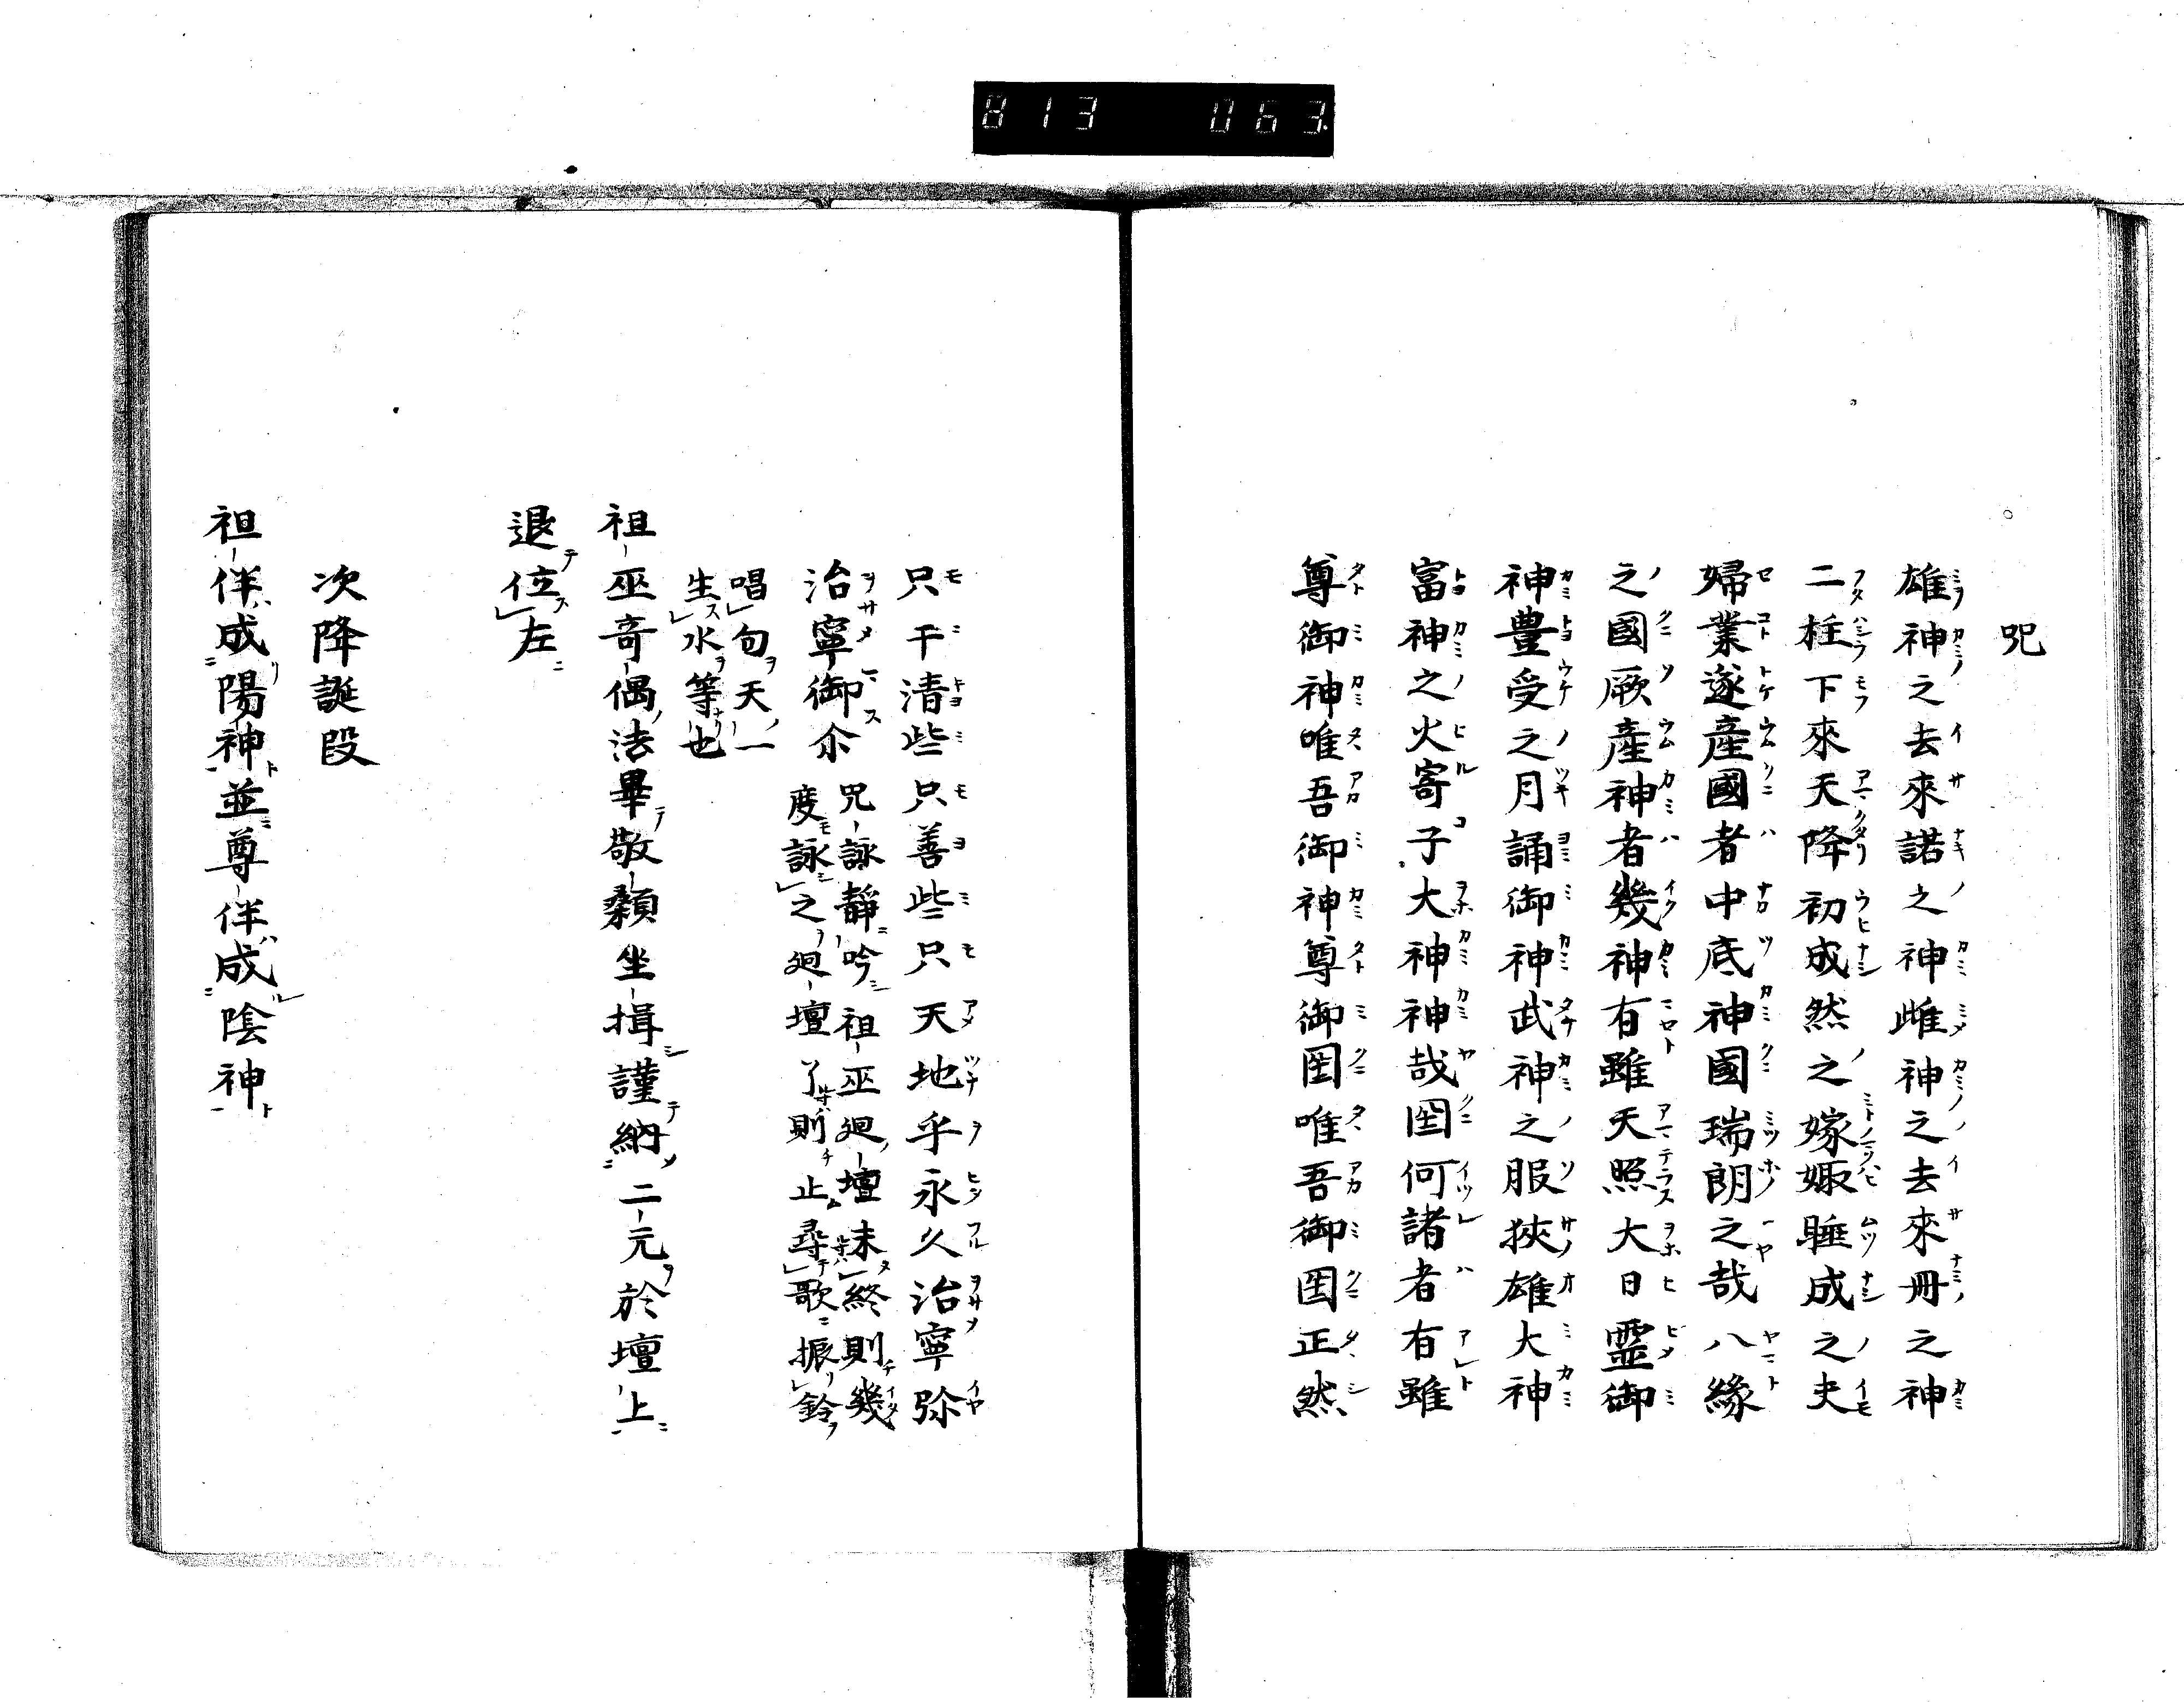 813 063
呪
雄神之去來諾之神雌神之去來冊之神
二柱下來天降初成然之嫁娵睡成之夫
婦業遂産國者中底神國瑞朗之哉八緣
之國厥産神者幾神有雖天照大日霊御
神豊受之月誦御神武神之服狹雄大神
富神之火寄子大神神哉囯何諸者有雖
尊御神唯吾御神尊御囯唯吾御囯正然
只干清些只善些只天地乎永久治寧弥
治寧御尒
咒詠靜吟祖巫廻壇未終則幾
度詠之廻壇了則止尋歌振鈴
唱句天一
生水等也
祖巫奇偶法畢敬顙坐揖謹納二元於壇上
退位左
次降誕段
祖伴成陽神並尊伴成陰神